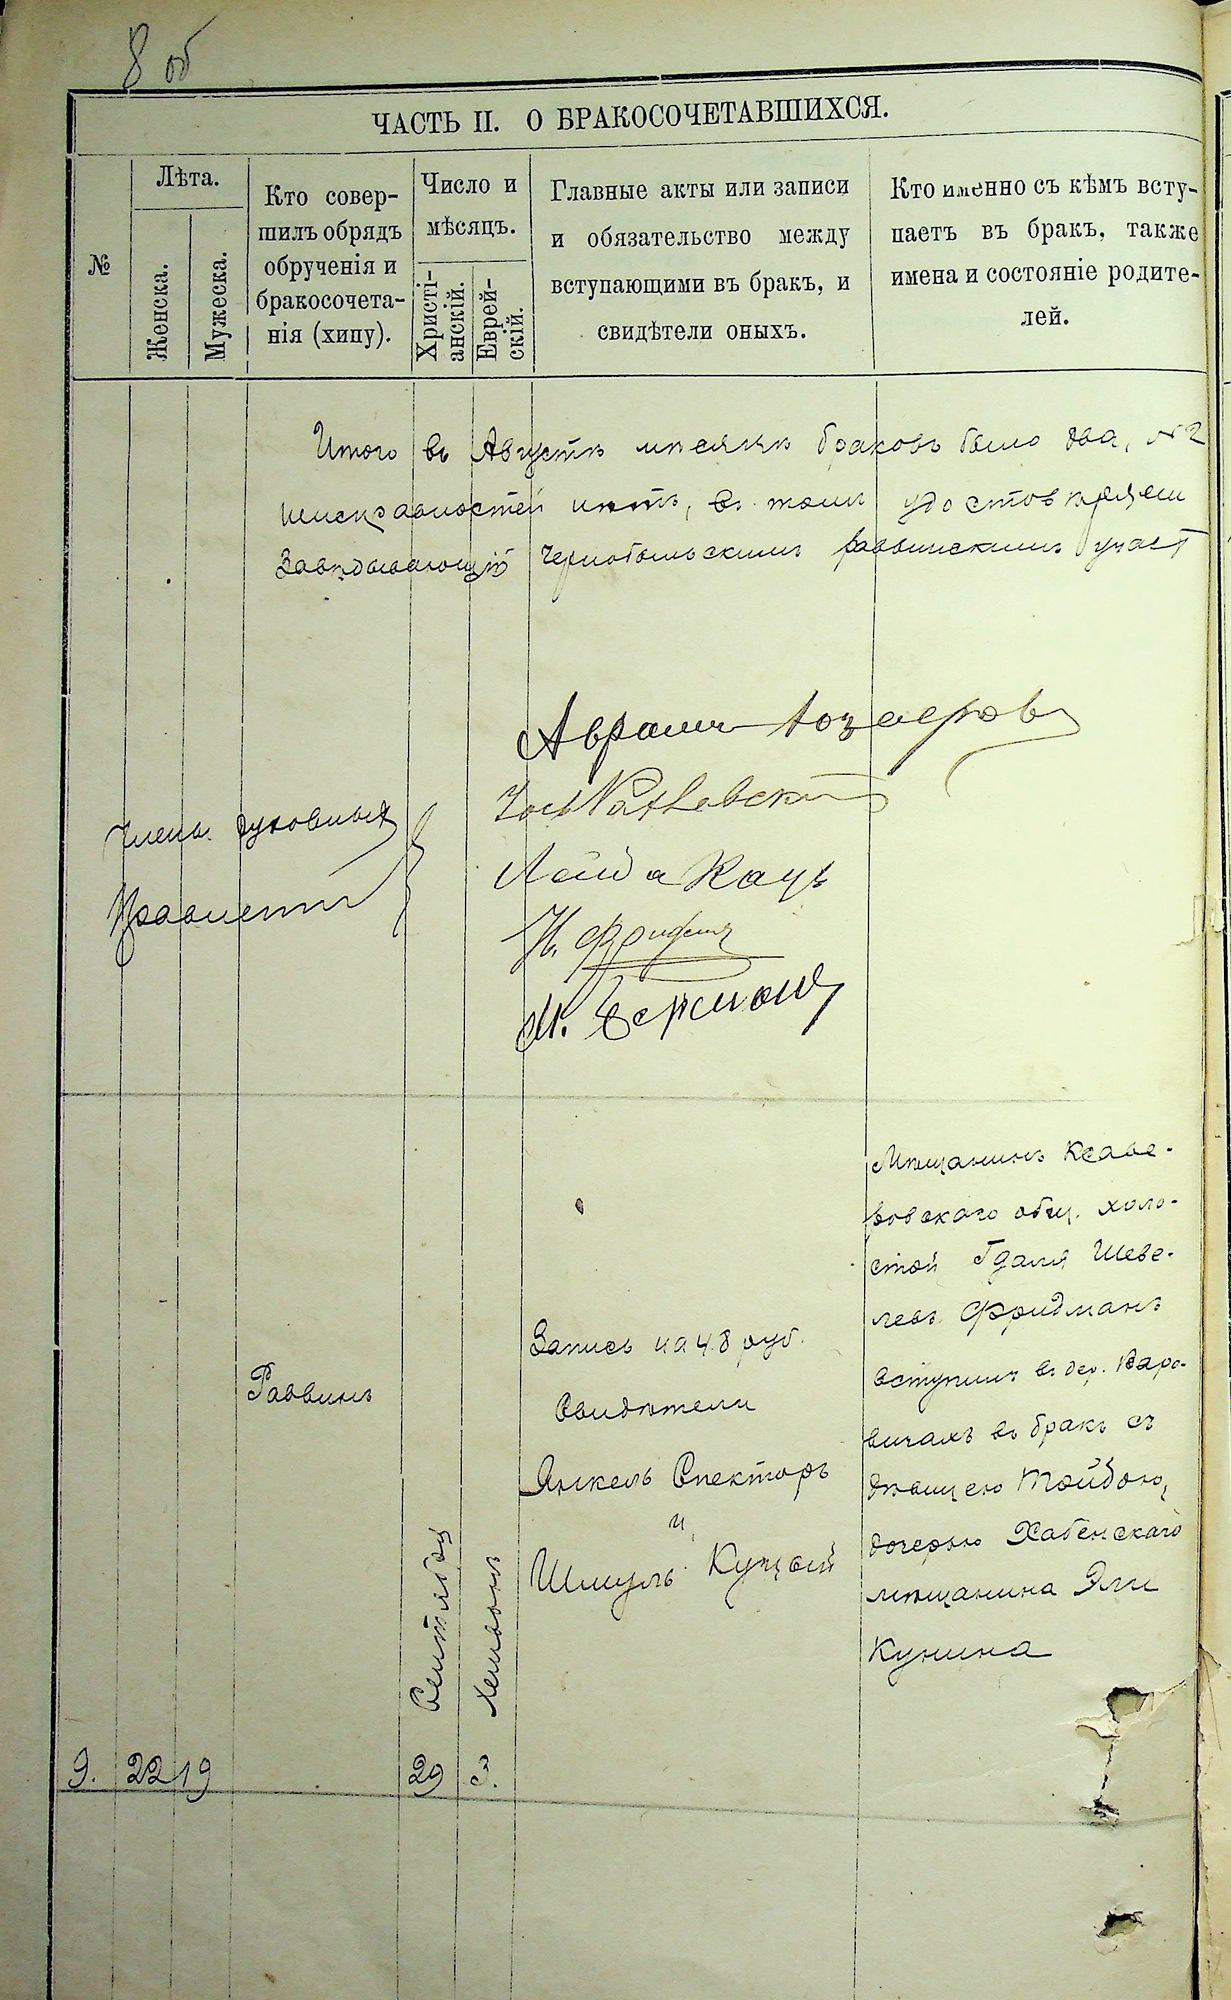 8 об
ЧАСТЬ II. О БРАКОСОЧЕТАВШИХСЯ.
№
Лѣта.
Женска.
Мужеска.
Кто совер-
шилъ обрядъ
обрученія и
бракосочета-
нія (хипу).
Число и
мѣсяцъ.
Христі-
анскій.
Еврей-
скій.
Главные акты или записи
и обязательство между
вступающими въ бракъ, и
свидѣтели оныхъ.
Кто именно съ кѣмъ всту-
паетъ въ бракъ, также
имена и состояніе родите-
лей.
Итого въ Августѣ мѣсяцѣ браковъ было два, № 2
неисправностей нѣтъ, въ томъ удостовѣряем
Завѣдывающій Чернобыльскимъ раввинскимъ участ
Члены духовныхъ
Правленій
Аврамъ
Лейба Кацъ
М. Берман
9.
22
19
Раввинъ
29
Сентября
3.
Хешвонъ
Запись на 48 руб.
Свидѣтели
Янкель Спекторъ
и
Шмуль Куцый
Мѣщанинъ Ксаве-
ровскаго общ. холо-
стой Гдаля Шеве-
левъ Фридманъ
вступилъ въ дер. Варо-
вичахъ въ бракъ съ
дѣвицею Тойбою,
дочерью Хабенскаго
мѣщанина Эли
Кунина